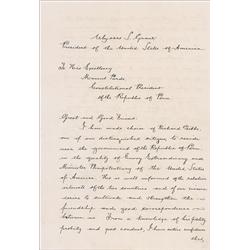 Ulysses S. Grant
President of the United States of America.
To His Excellency
Manuel Pardo
Constitutional President
of the Republic of Peru
Great and Good Friend:
I have made choice of Richard Gibbs,
one of our distinguished citizens to reside
near the government of the Republic of Peru
in the quality of Envoy Extraordinary and
Minister Plenipotentiary of the United States
of America. He is well informed of the relative
interests of the two countries and of our sincere
desire to cultivate and strengthen the
friendship and good correspondence
between us. From a knowledge of his fidelity
probity and good conduct, I have entire confidence
that